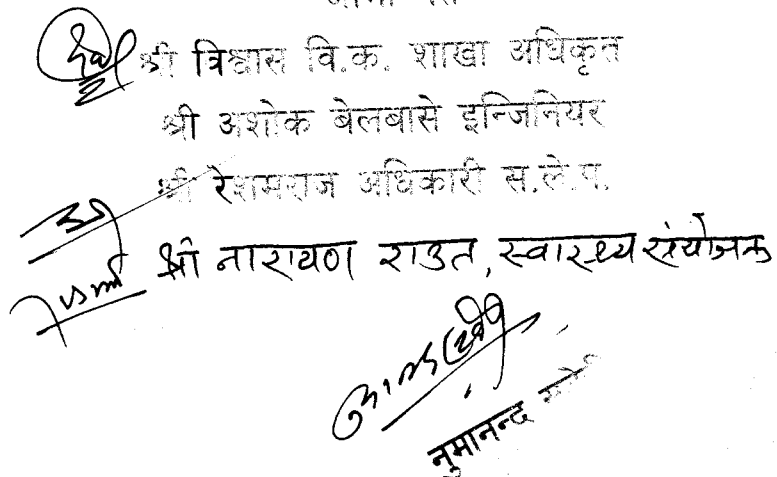 श्री विश्वास वि.क. शाखा अधिकृत
श्री अशोक बेलबासे इन्जिनियर
श्री रेशमराज अधिकारी स.ले.प.
श्री नारायण राउत, स्वास्थ्य संयोजक
नुमानन्द